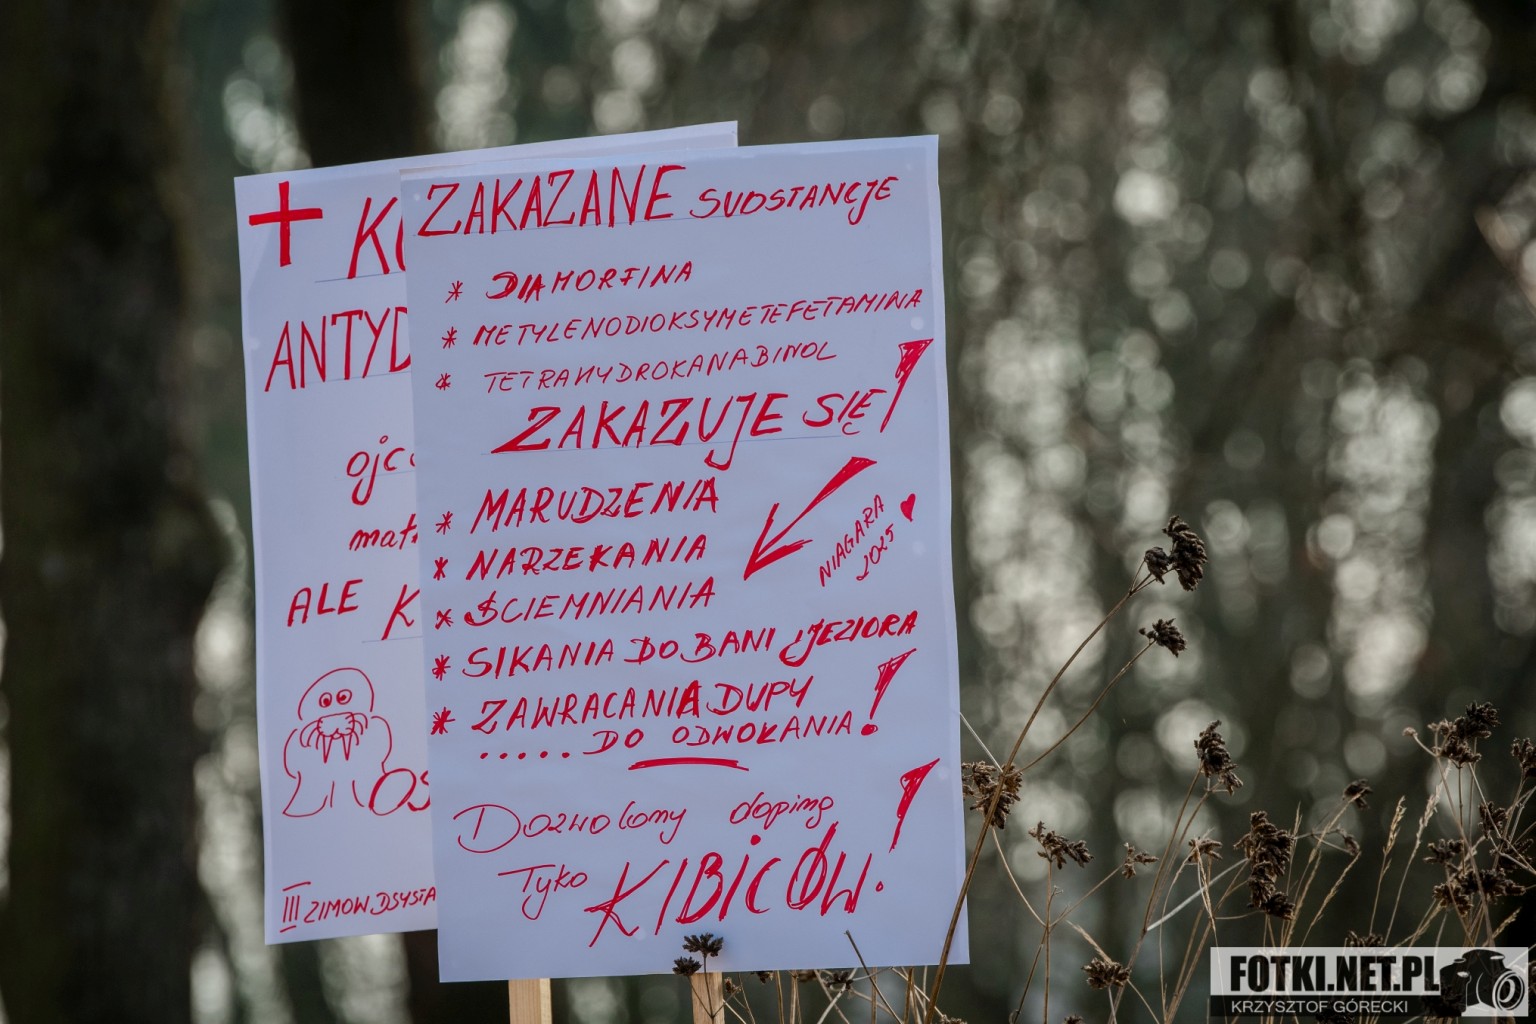 + K
ANTYD
ojc
mat
ALE K
OS
III ZIMOW DSYSTA
ZAKAZANE SUBSTANCJE
* DIAMORFINA
* METYLENODIOKSYMETEFETAMINA
* TETRAHYDROKANABINOL
ZAKAZUJE SIĘ!
* MARUDZENIA
* NARZEKANIA
* ŚCIEMNIANIA
* SIKANIA DO BANI i JEZIORA
* ZAWRACANIA DUPY
..... DO ODWOŁANIA!
NIAGARA ♥
2025
Dozwolony doping
Tyko KIBICÓW!
FOTKI.NET.PL
KRZYSZTOF GÓRECKI